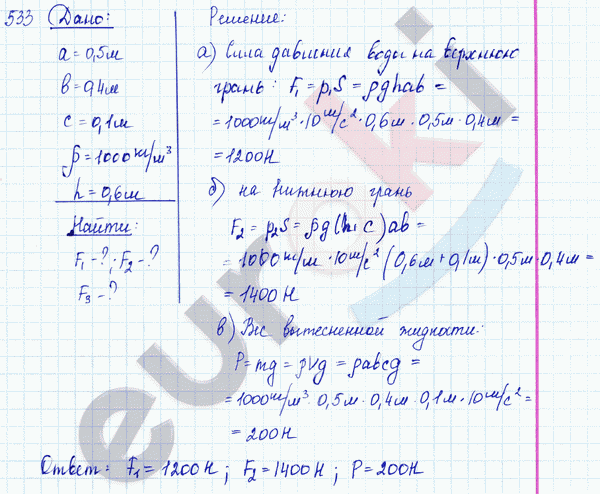 533 Дано:
a = 0,5м
b = 0,4м
c = 0,1м
ρ = 1000 кг/м³
h = 0,6м
Найти:
F₁ - ?; F₂ - ?
F₃ - ?
Решение:
а) Сила давления воды на верхнюю
грань: F₁ = p₁S = ρghab =
= 1000 кг/м³ · 10 м/с² · 0,6м · 0,5м · 0,4м =
= 1200Н
б) на нижнюю грань
F₂ = p₂S = ρg(h+c)ab =
= 1000 кг/м · 10 м/с² (0,6м + 0,1м) · 0,5м · 0,4м =
= 1400 Н
в) Вес вытесненной жидкости:
P = mg = ρVg = ρabcg =
= 1000 кг/м³ · 0,5м · 0,4м · 0,1м · 10 м/с² =
= 200Н
Ответ: F₁ = 1200Н; F₂ = 1400Н; P = 200Н
euroki